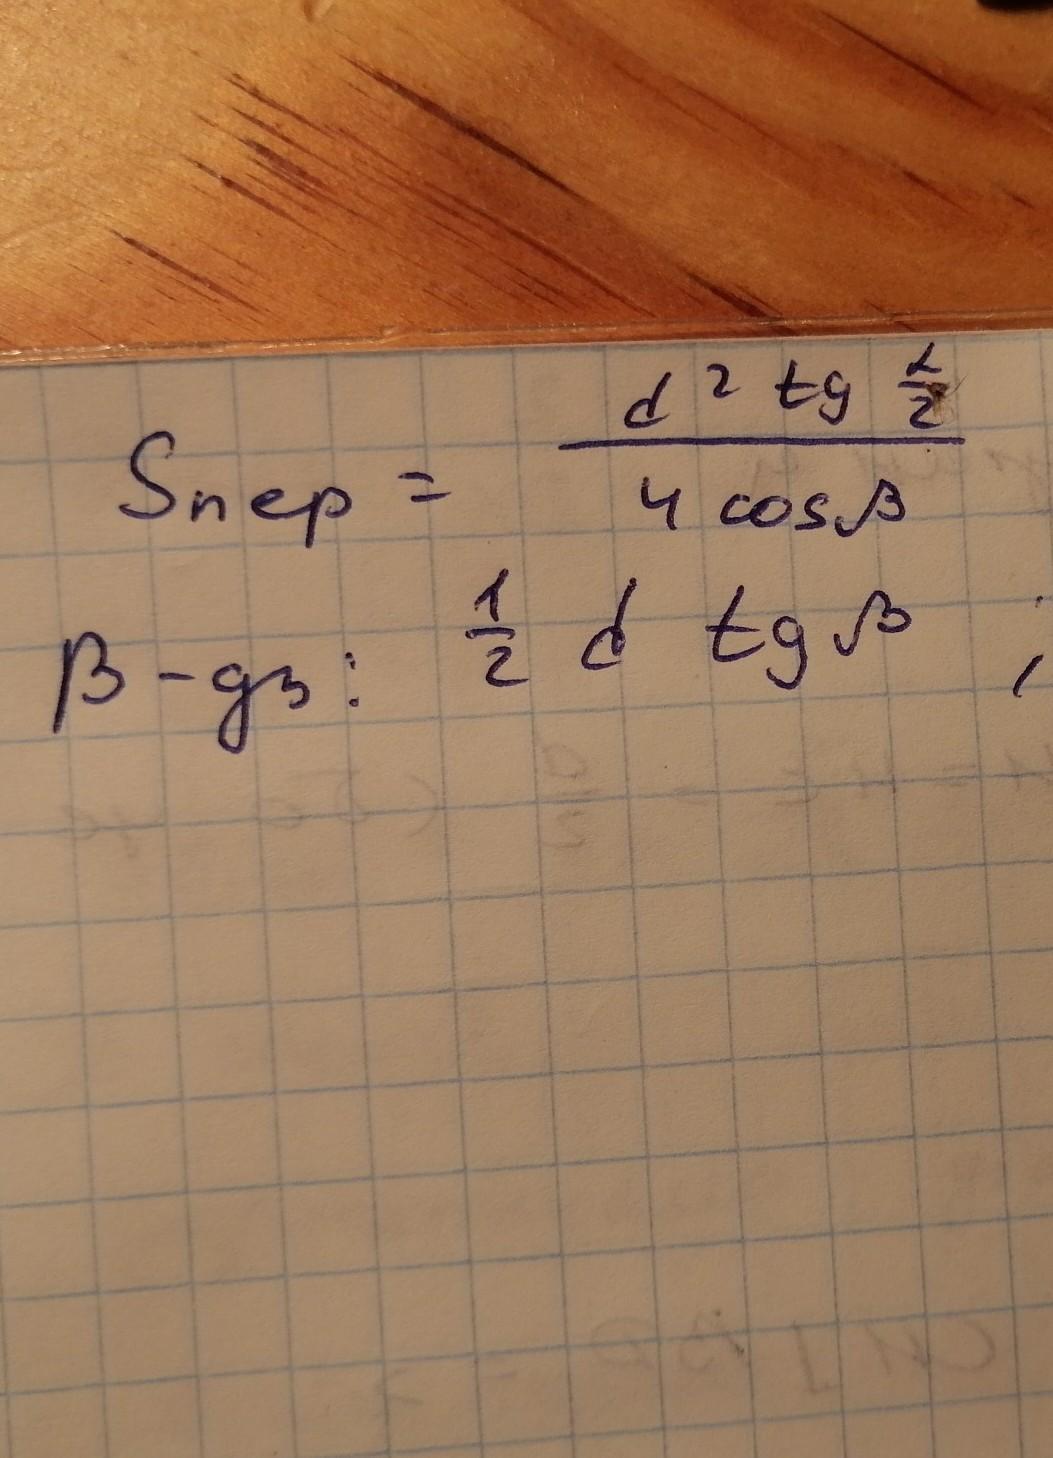 Sпер = d² tg α/2 / 4 cos β
β-gз: 1/2 d tg β ;